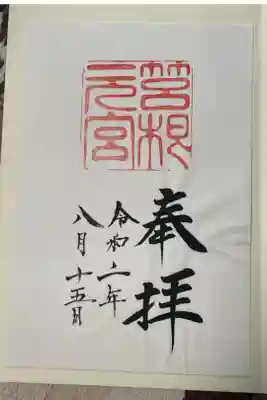 筥根
元宮
奉拝
令和二年
八月十五日